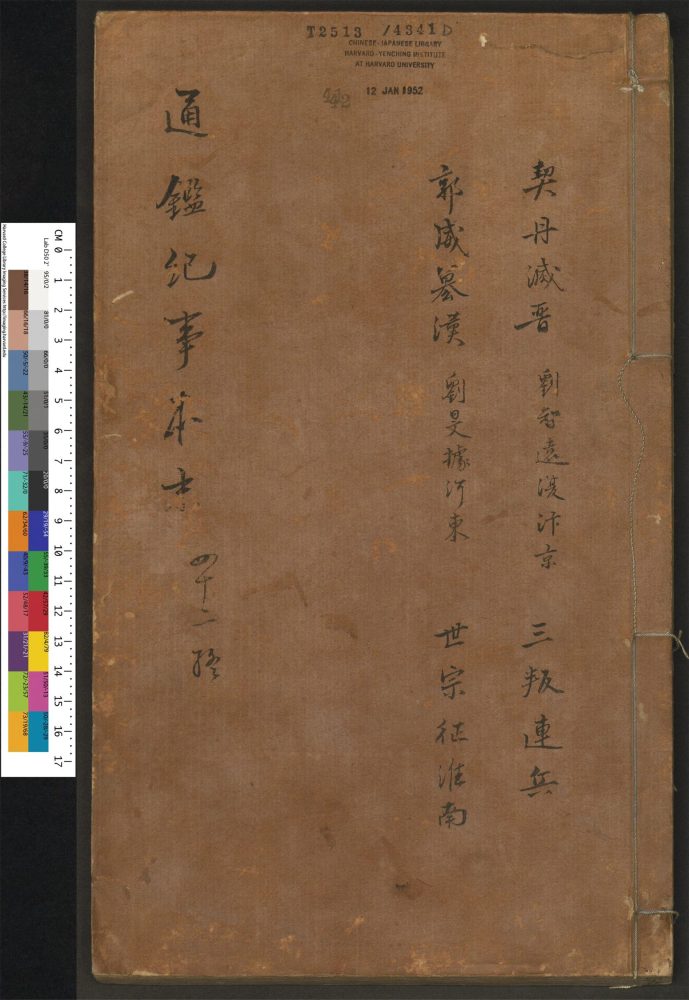 T2513 /4341D
CHINESE-JAPANESE LIBRARY
HARVARD-YENCHING INSTITUTE
AT HARVARD UNIVERSITY
12 JAN 1952
442
契丹滅晋 劉智遠復汴京 三叛連兵
郭威篡漢 劉旻據河東 世宗征淮南
通鑑紀事本末 四十二終
CM 0 1 2 3 4 5 6 7 8 9 10 11 12 13 14 15 16 17